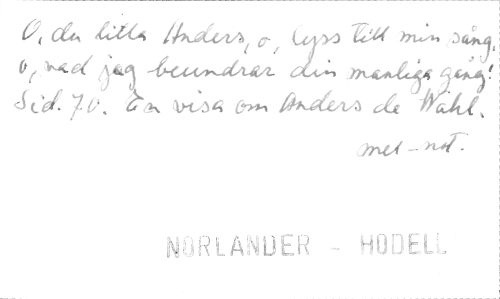 O, du lilla Anders, o, lyss till min sång,
o, vad jag beundrar din manliga gång!
Sid. 70. En visa om Anders de Wahl.
mel-not.
NORLANDER - HODELL